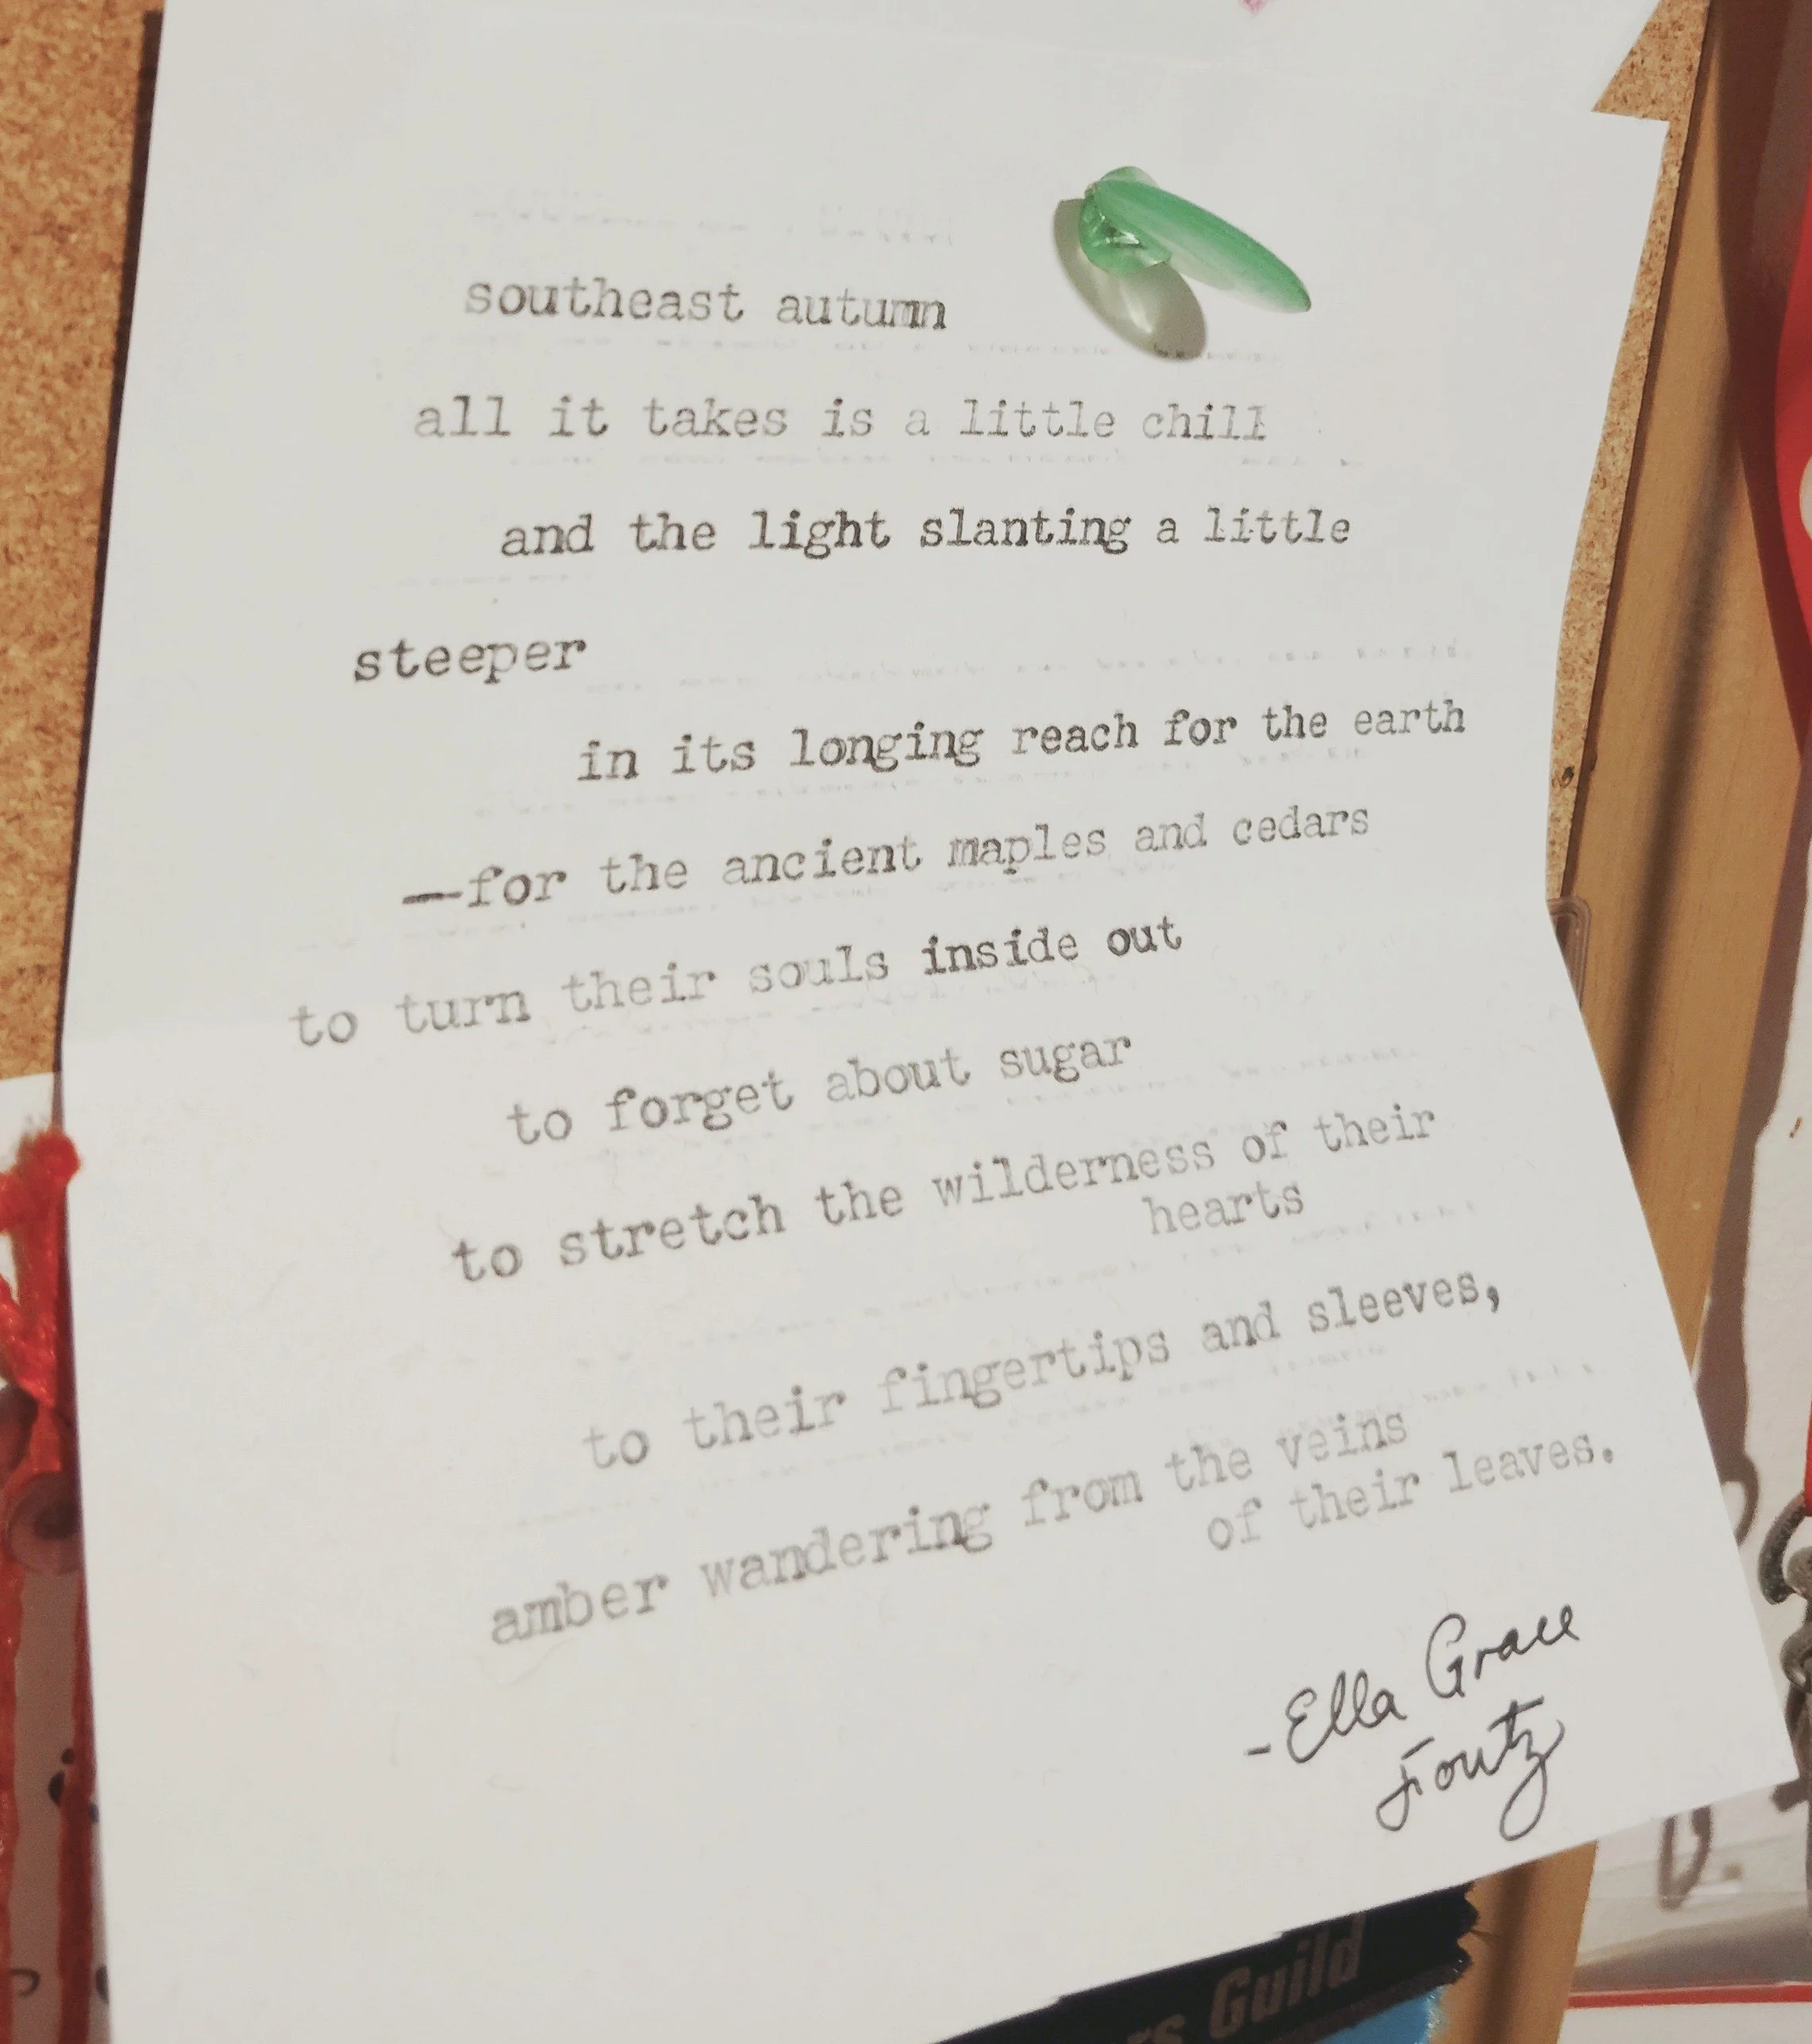 southeast autumn
all it takes is a little chill
and the light slanting a little
steeper
in its longing reach for the earth
—for the ancient maples and cedars
to turn their souls inside out
to forget about sugar
to stretch the wilderness of their
hearts
to their fingertips and sleeves,
amber wandering from the veins
of their leaves.
-Ella Grace
Foutz
D.
Guild